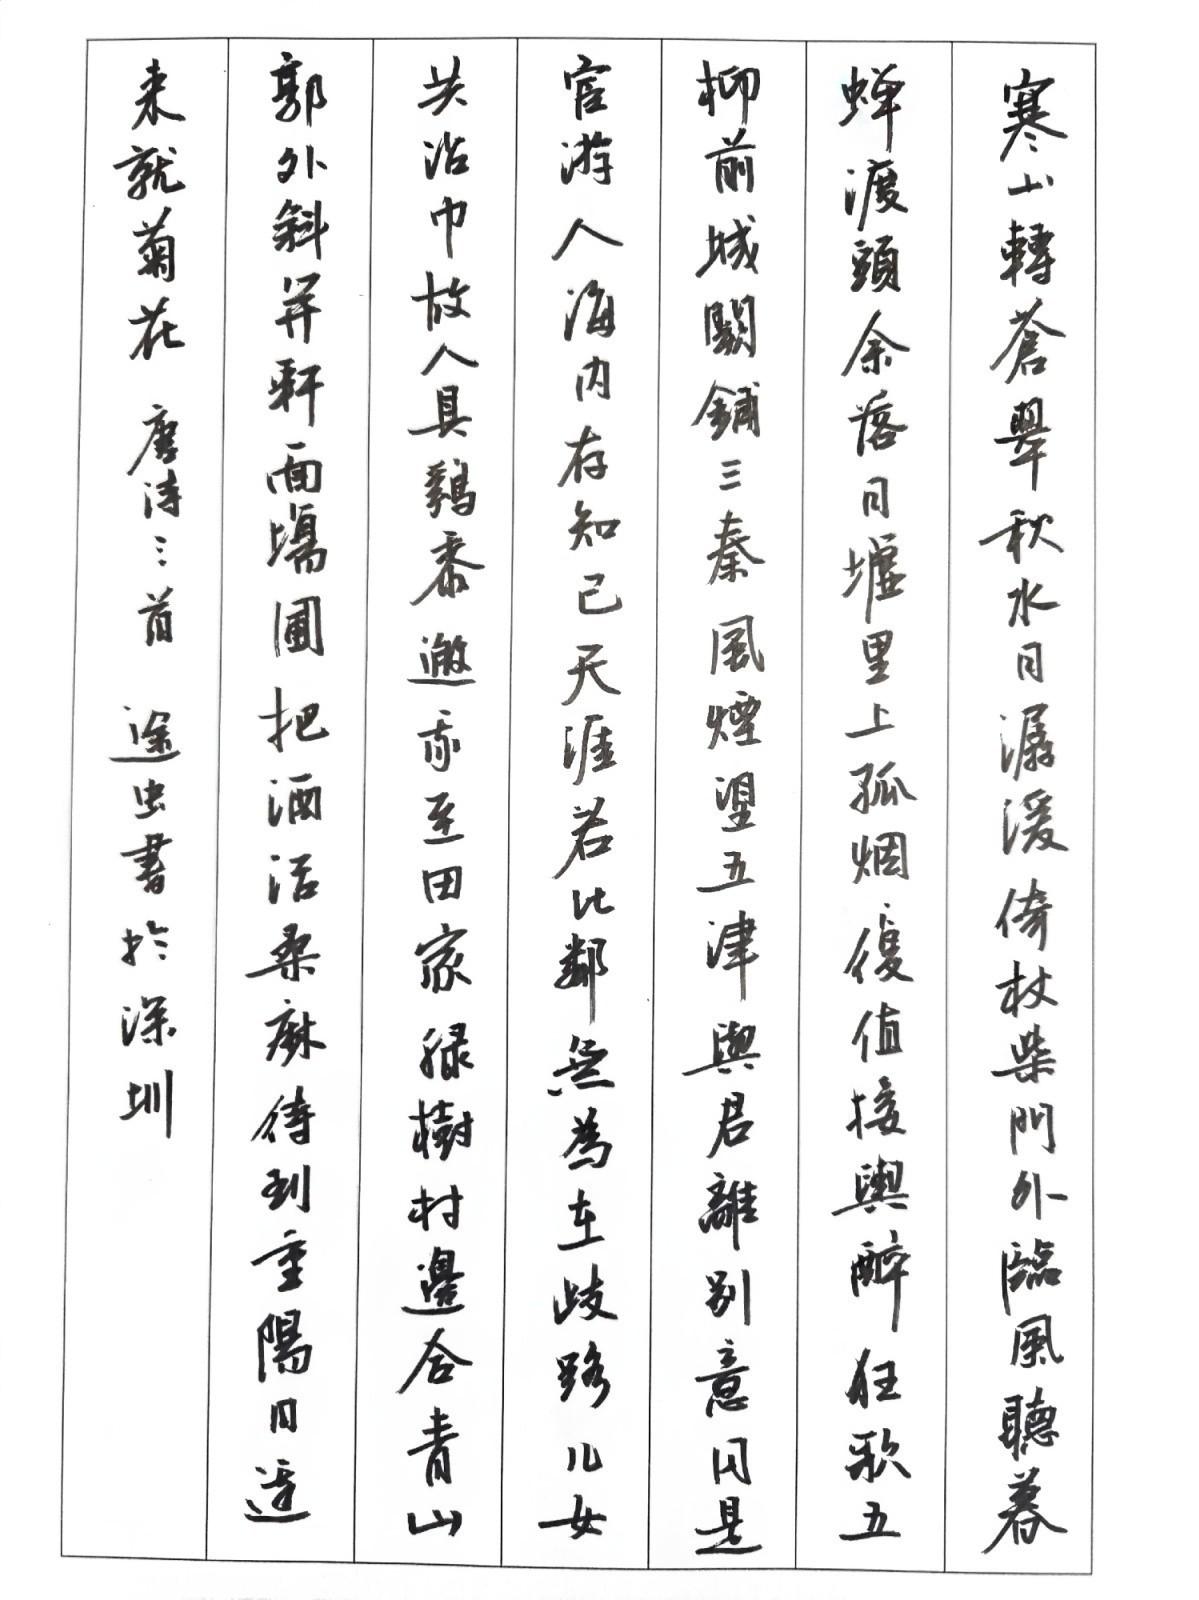 寒山轉蒼翠秋水日潺湲倚杖柴門外臨風聽暮
蟬渡頭余落日墟里上孤烟復值接輿醉狂歌五
柳前城闕鋪三秦風煙望五津與君離别意同是
宦游人海内存知己天涯若比鄰無為在歧路儿女
共沾巾故人具鷄黍邀我至田家緑樹村邊合青山
郭外斜开軒面場圃把酒話桑麻待到重陽日還
来就菊花 唐詩三首 途虫書於深圳